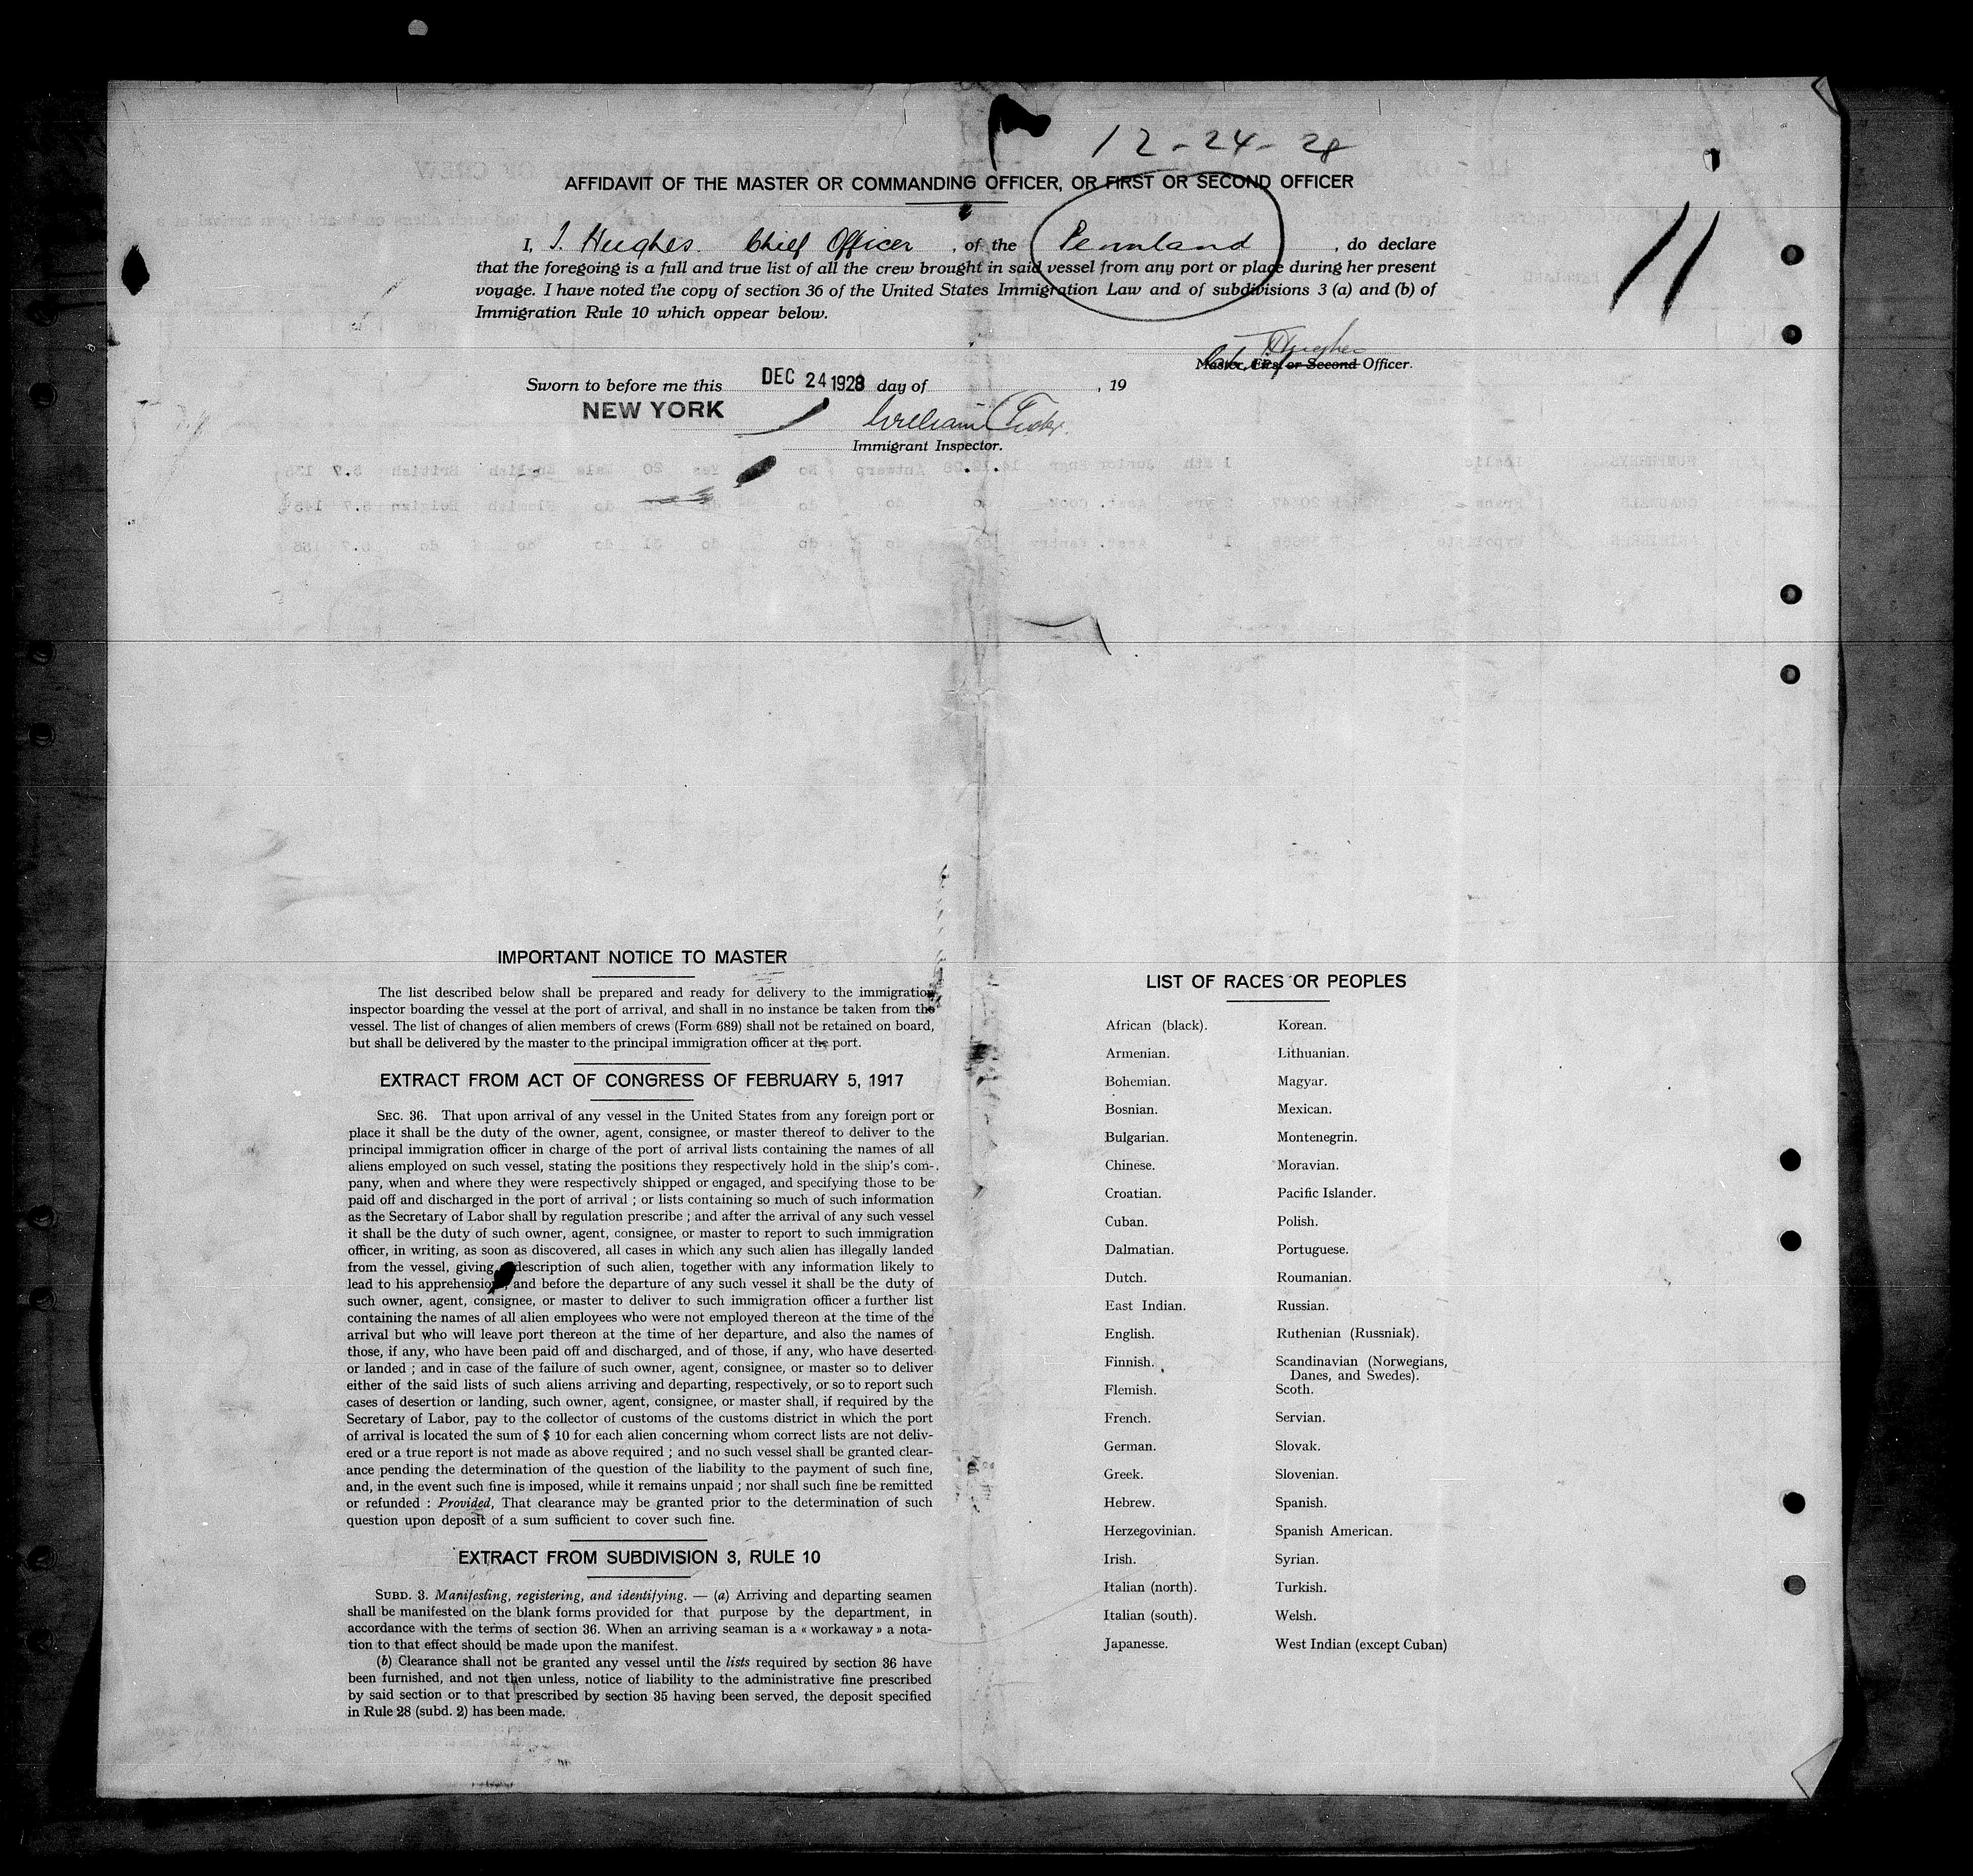 12-24-28
AFFIDAVIT OF THE MASTER OR COMMANDING OFFICER, OR FIRST OR SECOND OFFICER
I, J. Hughes. Chief Officer, of the Pennland, do declare
that the foregoing is a full and true list of all the crew brought in said vessel from any port or place during her present
voyage. I have noted the copy of section 36 of the United States Immigration Law and of subdivisions 3 (a) and (b) of
Immigration Rule 10 which oppear below.
11
Hughes
Master, First or Second Officer.
Sworn to before me this DEC 24 1928 day of , 19
NEW YORK
William
Immigrant Inspector.
IMPORTANT NOTICE TO MASTER
The list described below shall be prepared and ready for delivery to the immigration
inspector boarding the vessel at the port of arrival, and shall in no instance be taken from the
vessel. The list of changes of alien members of crews (Form 689) shall not be retained on board,
but shall be delivered by the master to the principal immigration officer at the port.
EXTRACT FROM ACT OF CONGRESS OF FEBRUARY 5, 1917
SEC. 36. That upon arrival of any vessel in the United States from any foreign port or
place it shall be the duty of the owner, agent, consignee, or master thereof to deliver to the
principal immigration officer in charge of the port of arrival lists containing the names of all
aliens employed on such vessel, stating the positions they respectively hold in the ship's com-
pany, when and where they were respectively shipped or engaged, and specifying those to be
paid off and discharged in the port of arrival ; or lists containing so much of such information
as the Secretary of Labor shall by regulation prescribe ; and after the arrival of any such vessel
it shall be the duty of such owner, agent, consignee, or master to report to such immigration
officer, in writing, as soon as discovered, all cases in which any such alien has illegally landed
from the vessel, giving description of such alien, together with any information likely to
lead to his apprehension, and before the departure of any such vessel it shall be the duty of
such owner, agent, consignee, or master to deliver to such immigration officer a further list
containing the names of all alien employees who were not employed thereon at the time of the
arrival but who will leave port thereon at the time of her departure, and also the names of
those, if any, who have been paid off and discharged, and of those, if any, who have deserted
or landed ; and in case of the failure of such owner, agent, consignee, or master so to deliver
either of the said lists of such aliens arriving and departing, respectively, or so to report such
cases of desertion or landing, such owner, agent, consignee, or master shall, if required by the
Secretary of Labor, pay to the collector of customs of the customs district in which the port
of arrival is located the sum of $ 10 for each alien concerning whom correct lists are not deliv-
ered or a true report is not made as above required ; and no such vessel shall be granted clear-
ance pending the determination of the question of the liability to the payment of such fine,
and, in the event such fine is imposed, while it remains unpaid ; nor shall such fine be remitted
or refunded : Provided, That clearance may be granted prior to the determination of such
question upon deposit of a sum sufficient to cover such fine.
EXTRACT FROM SUBDIVISION 3, RULE 10
SUBD. 3. Manifesting, registering, and identifying. — (a) Arriving and departing seamen
shall be manifested on the blank forms provided for that purpose by the department, in
accordance with the terms of section 36. When an arriving seaman is a « workaway » a nota-
tion to that effect should be made upon the manifest.
(b) Clearance shall not be granted any vessel until the lists required by section 36 have
been furnished, and not then unless, notice of liability to the administrative fine prescribed
by said section or to that prescribed by section 35 having been served, the deposit specified
in Rule 28 (subd. 2) has been made.
LIST OF RACES OR PEOPLES
African (black). Korean.
Armenian. Lithuanian.
Bohemian. Magyar.
Bosnian. Mexican.
Bulgarian. Montenegrin.
Chinese. Moravian.
Croatian. Pacific Islander.
Cuban. Polish.
Dalmatian. Portuguese.
Dutch. Roumanian.
East Indian. Russian.
English. Ruthenian (Russniak).
Finnish. Scandinavian (Norwegians,
Danes, and Swedes).
Flemish. Scoth.
French. Servian.
German. Slovak.
Greek. Slovenian.
Hebrew. Spanish.
Herzegovinian. Spanish American.
Irish. Syrian.
Italian (north). Turkish.
Italian (south). Welsh.
Japanesse. West Indian (except Cuban)